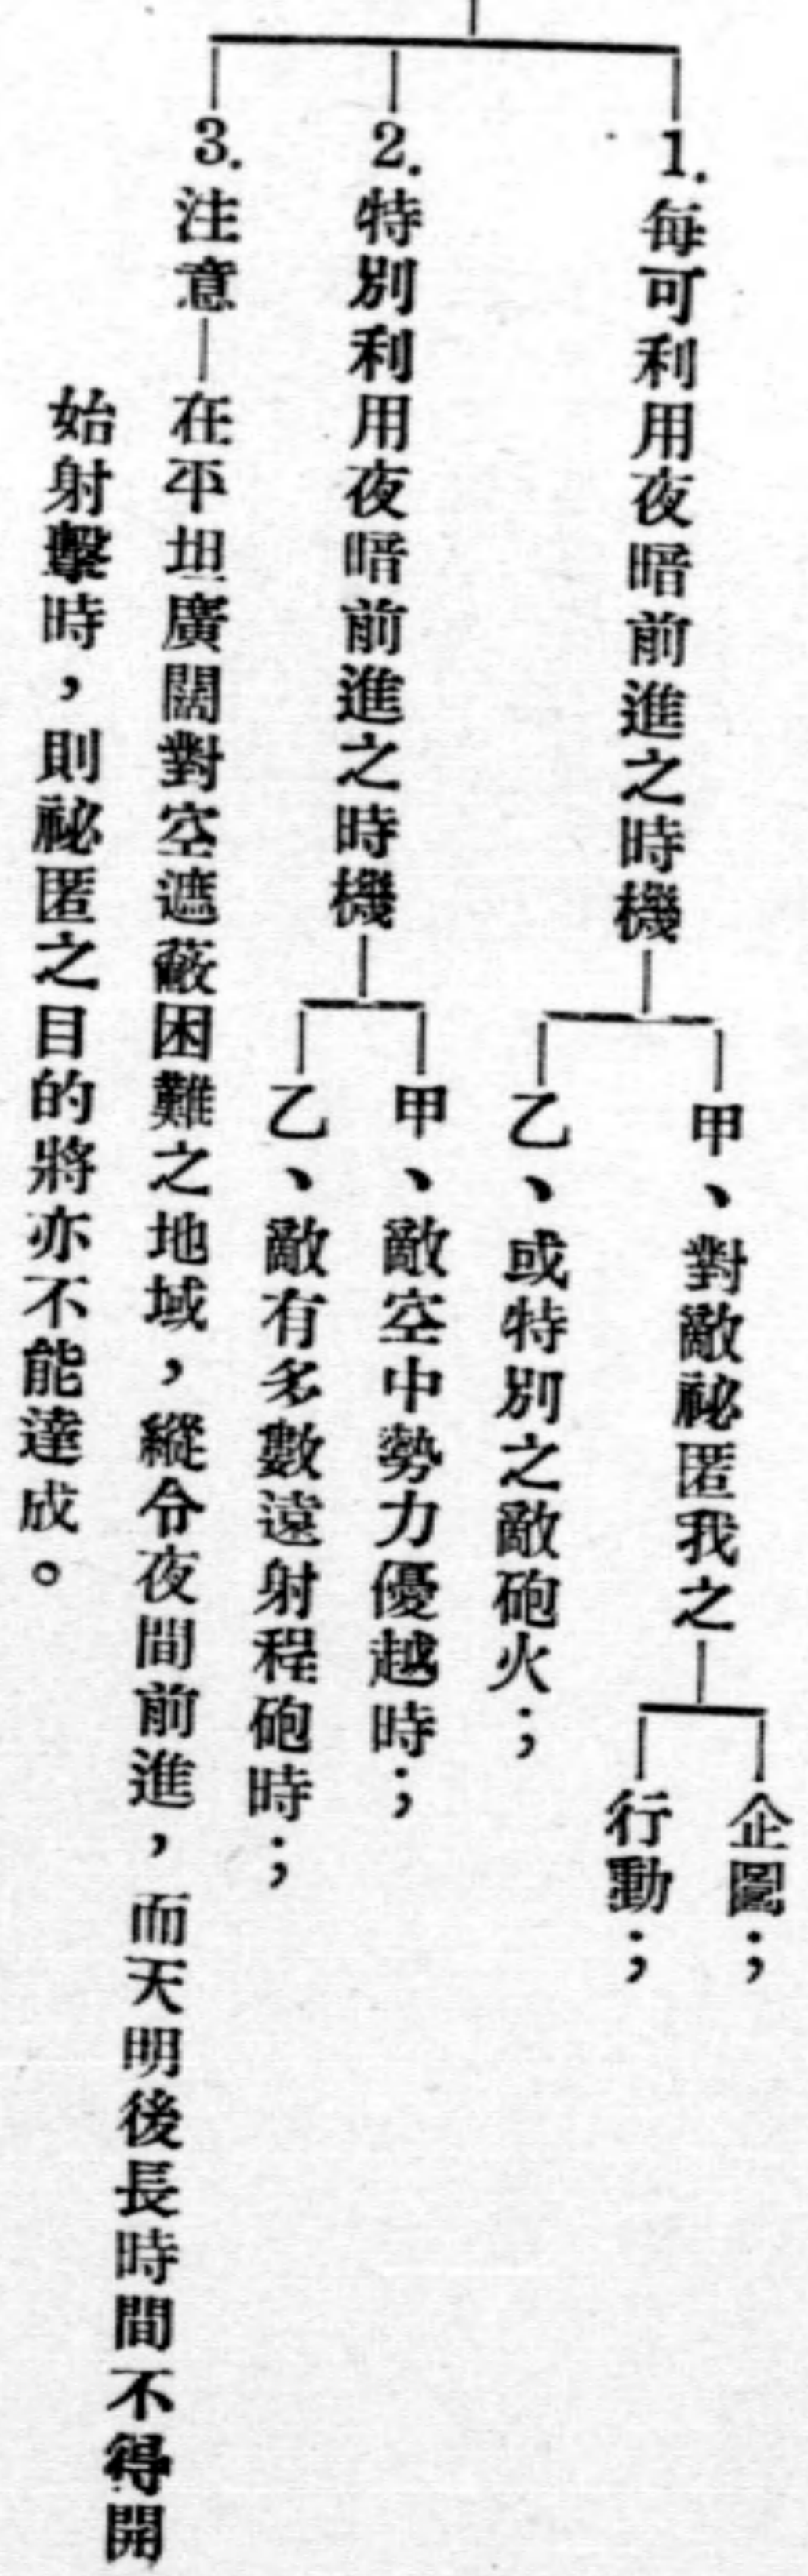 1.每可利用夜暗前進之時機
甲、對敵祕匿我之
企圖；
行動；
乙、或特別之敵砲火；
2.特別利用夜暗前進之時機
甲、敵空中勢力優越時；
乙、敵有多數遠射程砲時；
3.注意—在平坦廣闊對空遮蔽困難之地域，縱令夜間前進，而天明後長時間不得開
始射擊時，則祕匿之目的將亦不能達成。